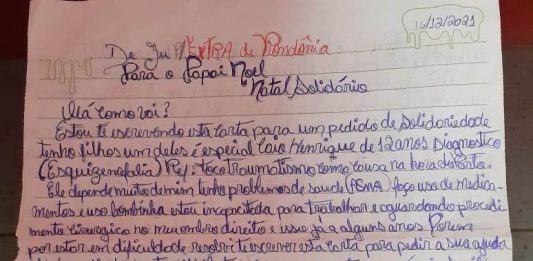 16/12/2021
De Ju P/ EXTRA de Rondônia
Para o Papai Noel
Natal Solidário
Olá como vai?
Estou te escrevendo esta carta para um pedido de Solidoriedade
tenho filhos um deles é especial Caio Henrique de 12 anos Diagnostico
(Esquizencefalia) Ref: tocotraumatismo como causa na hora do Parto.
Ele depende muito de mim tenho problemas de saude (ASMA) faço uso de Medica-
mentos e uso bombinha estou incapacitada para trabalhar e aguardando procedi-
mento cirurgico no meu membro direito e isso já a alguns anos Porem
por estar em dificuldade resolvi te escrever esta carta para pedir a sua ajuda